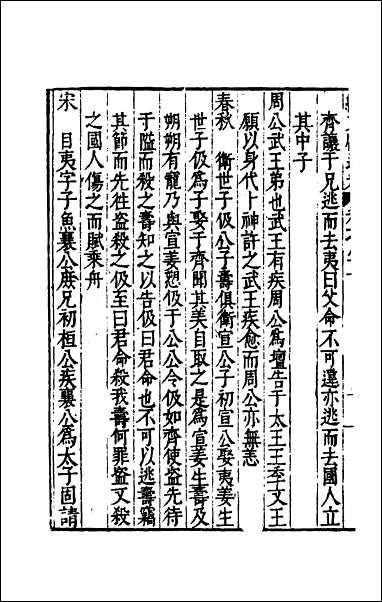 齊讓于兄逃而去夷曰父命不可違亦逃而去國人立
其中子
周公武王弟也武王有疾周公為壇告于太王王季文王
願以身代卜神許之武王疾愈而周公亦無恙
春秋　衞世子伋公子壽俱衞宣公子初宣公娶夷姜生
世子伋為子娶于齊聞其美自取之是為宣姜生壽及
朔朔有寵乃與宣姜愬伋于公公令伋如齊使盜先待
于隘而殺之壽知之以告伋曰君命也不可以逃壽竊
其節而先往盜殺之伋至曰君命殺我壽何罪盜又殺
之國人傷之而賦乗舟
宋　目夷字子魚襄公庶兄初桓公疾襄公為太子固請